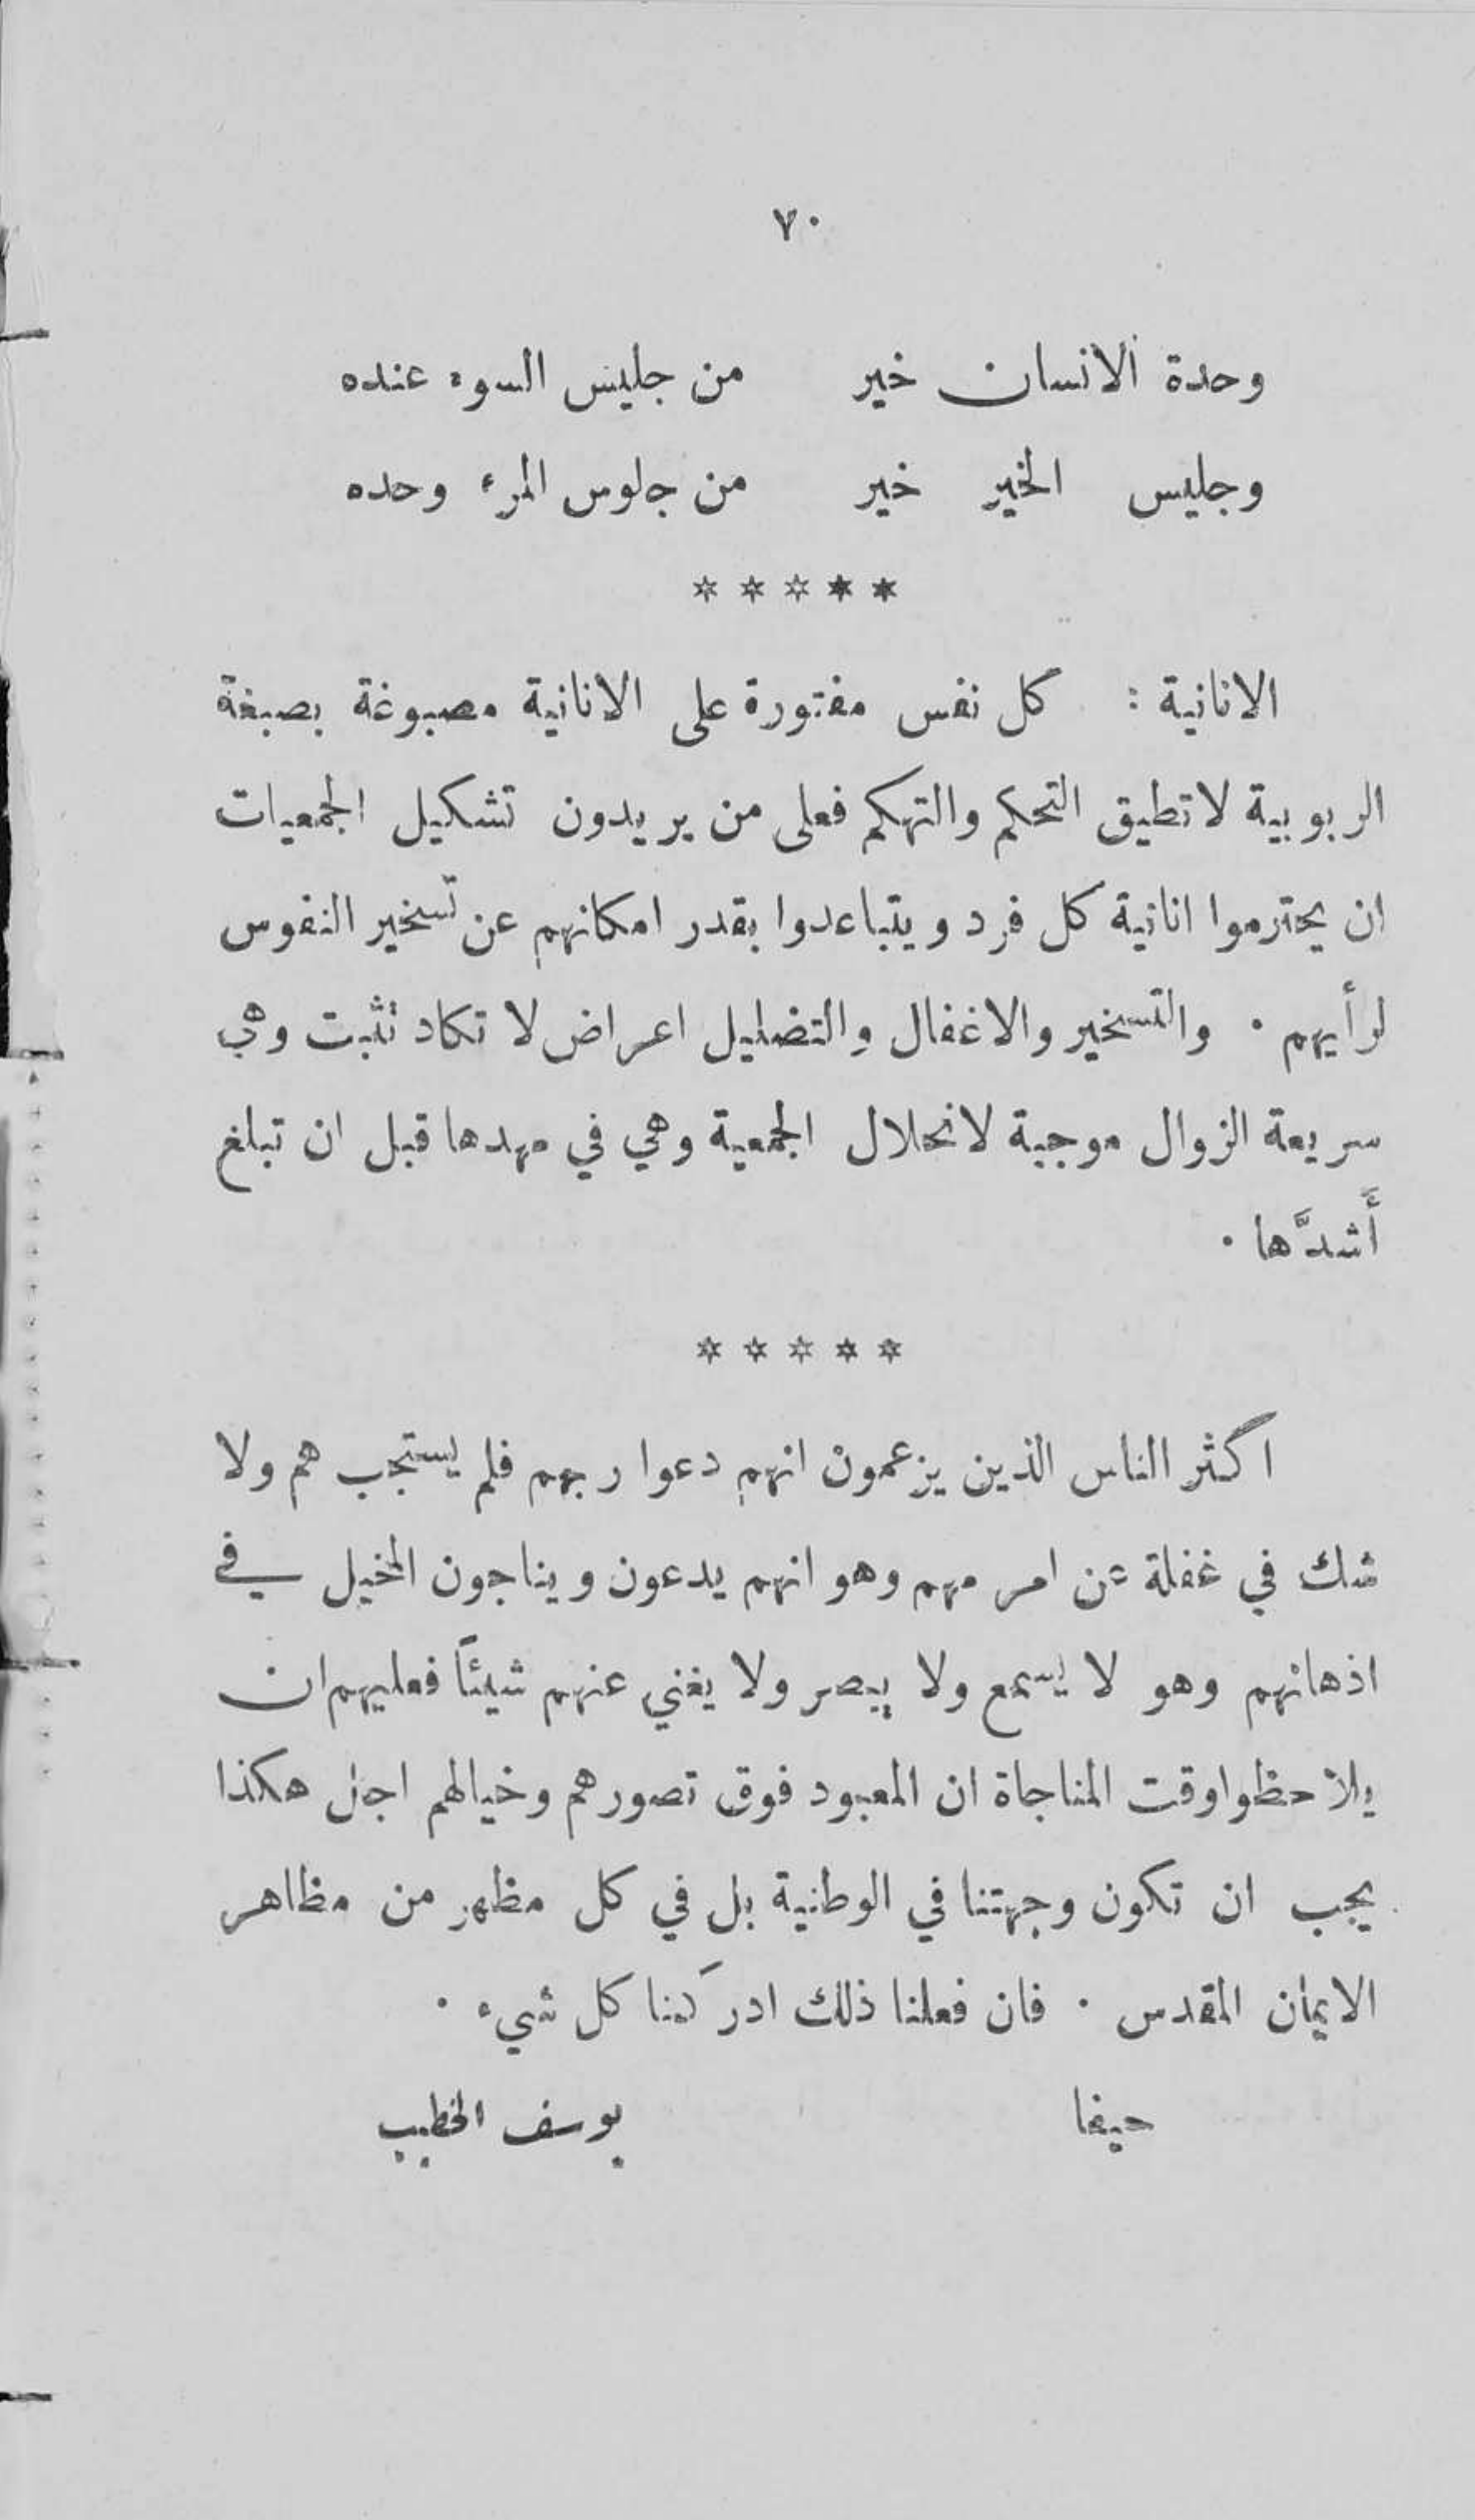 ٧٠
وحدة الانسان خير من جليس السوء عنده
وجليس الخير خير من جلوس المرء وحده
* * * * *
الانانية : كل نفس مفتورة على الانانية مصبوغة بصبغة
الربوبية لا تطيق التحكم والتهكم فعلى من يريدون تشكيل الجمعيات
ان يحترموا انانية كل فرد ويتباعدوا بقدر امكانهم عن تسخير النفوس
لرأيهم . والتسخير والاغفال والتضليل اعراض لا تكاد تثبت وهي
سريعة الزوال موجبة لانحلال الجمعية وهي في مهدها قبل ان تبلغ
أَشدَّها .
* * * * *
اكثر الناس الذين يزعمون انهم دعوا ربهم فلم يستجب هم ولا
شك في غفلة عن امر مهم وهو انهم يدعون ويناجون المخيل في
اذهانهم وهو لا يسمع ولا يبصر ولا يغني عنهم شيئاً فعليهم ان
يلاحظوا وقت المناجاة ان المعبود فوق تصورهم وخيالهم اجل هكذا
يجب ان تكون وجهتنا في الوطنية بل في كل مظهر من مظاهر
الايمان المقدس . فان فعلنا ذلك ادركنا كل شيء .
حيفا يوسف الخطيب